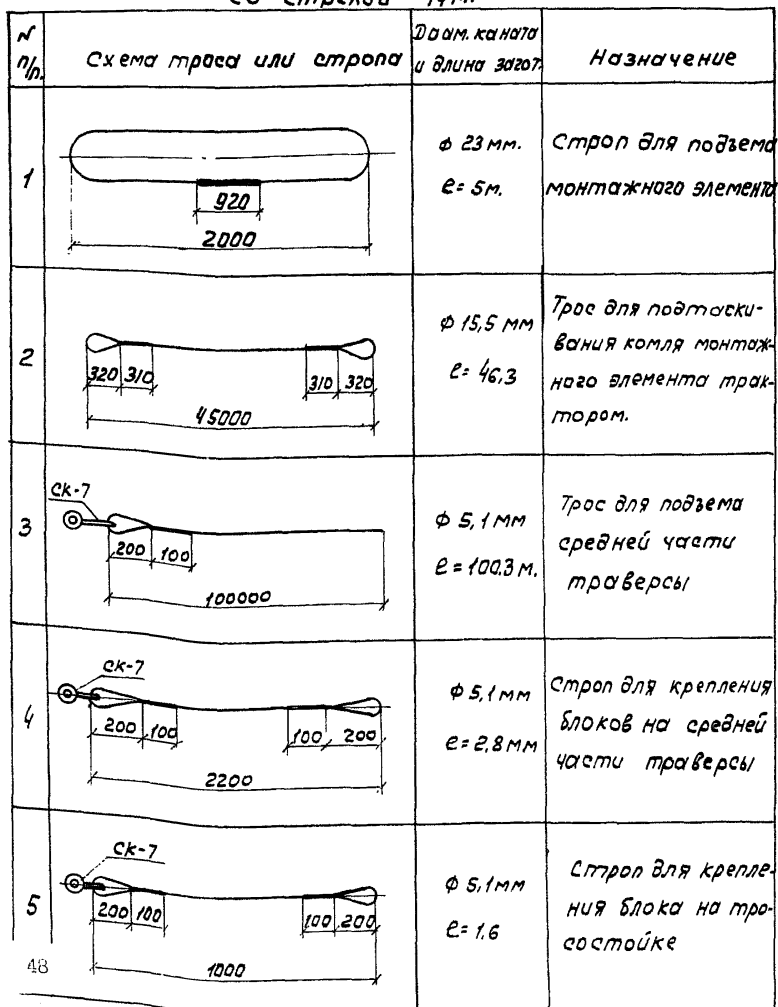 со стрелой 14м.
N п/п.
Схема троса или стропа
Диам. каната и длина загот.
Назначение
1
920
2000
ф 23 мм.
ℓ= 5м.
Строп для подъема
монтажного элемента
2
320 310
310 320
45000
ф 15,5 мм
ℓ= 46,3
Трос для подтаски-
вания комля монтаж-
ного элемента трак-
тором.
3
СК-7
200 100
100000
ф 5,1 мм
ℓ = 100.3 м.
Трос для подъема
средней части
траверсы
4
СК-7
200 100
100 200
2200
ф 5,1 мм
ℓ= 2,8 мм
Строп для крепления
блоков на средней
части траверсы
5
СК-7
200 100
100 200
1000
ф 5,1мм
ℓ= 1,6
Строп для крепле-
ния блока на тро-
состойке
48